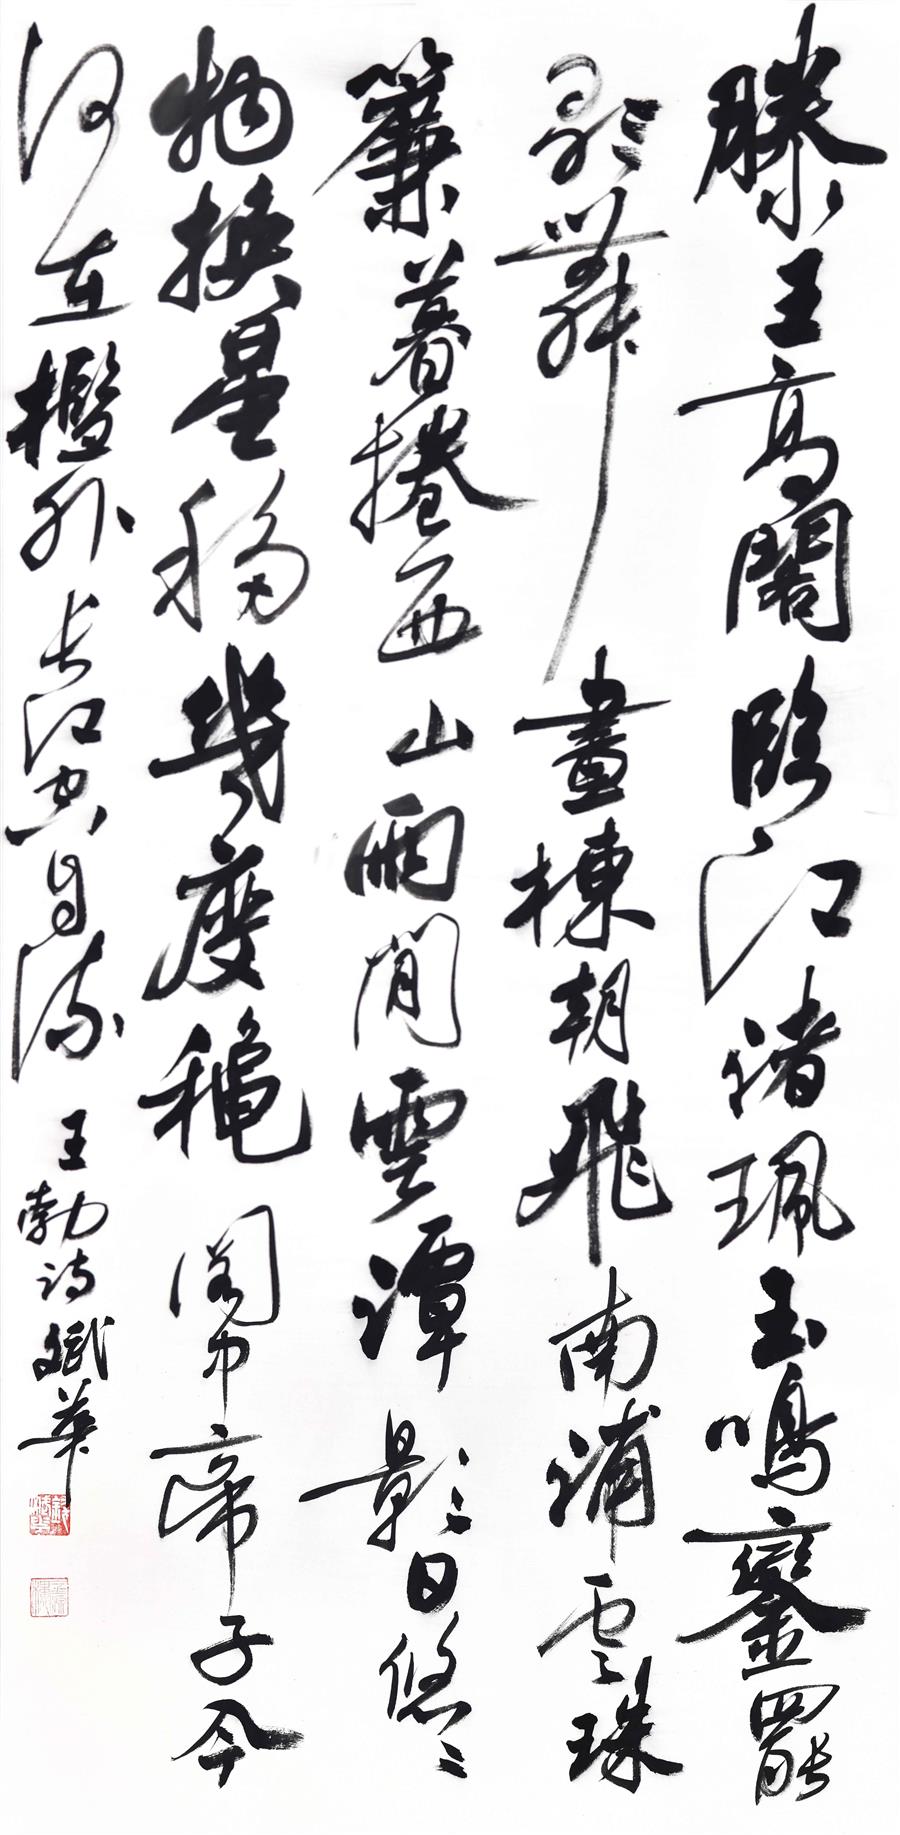 滕王高閣臨江渚珮玉鳴鑾罷
歌舞畫棟朝飛南浦雲珠
簾暮捲西山雨閒雲潭影日悠々
物換星移幾度穐閣中帝子今
何在檻外長江空自流 王勃詩 斌華